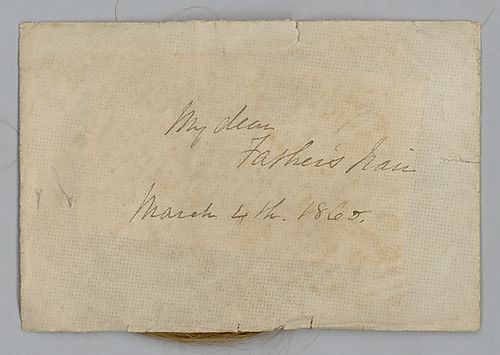 My dear
Father's hair
March 4th. 1860.